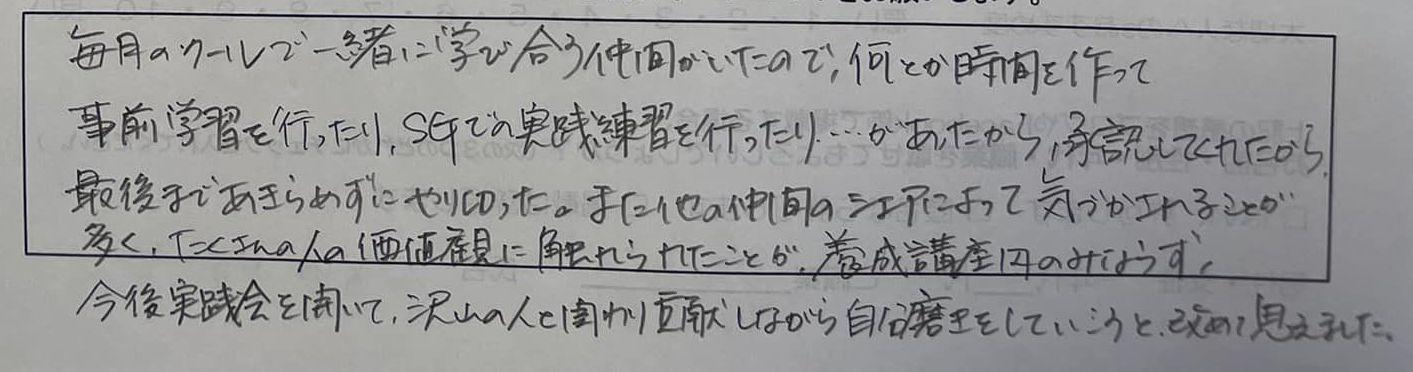 毎月のクールで一緒に学び合う仲間がいたので、何とか時間を作って
事前学習を行ったり、SGでの実践練習を行ったり…があったから、承認してくれたから、
最後まであきらめずにやり切った。また他の仲間のシェアによって気づかされることが
多く、たくさんの人の価値観に触れられたことが、養成講座内のみならず、
今後実践会を開いて、沢山の人と関わり貢献しながら自分磨きをしていこうと、改めて思えました。